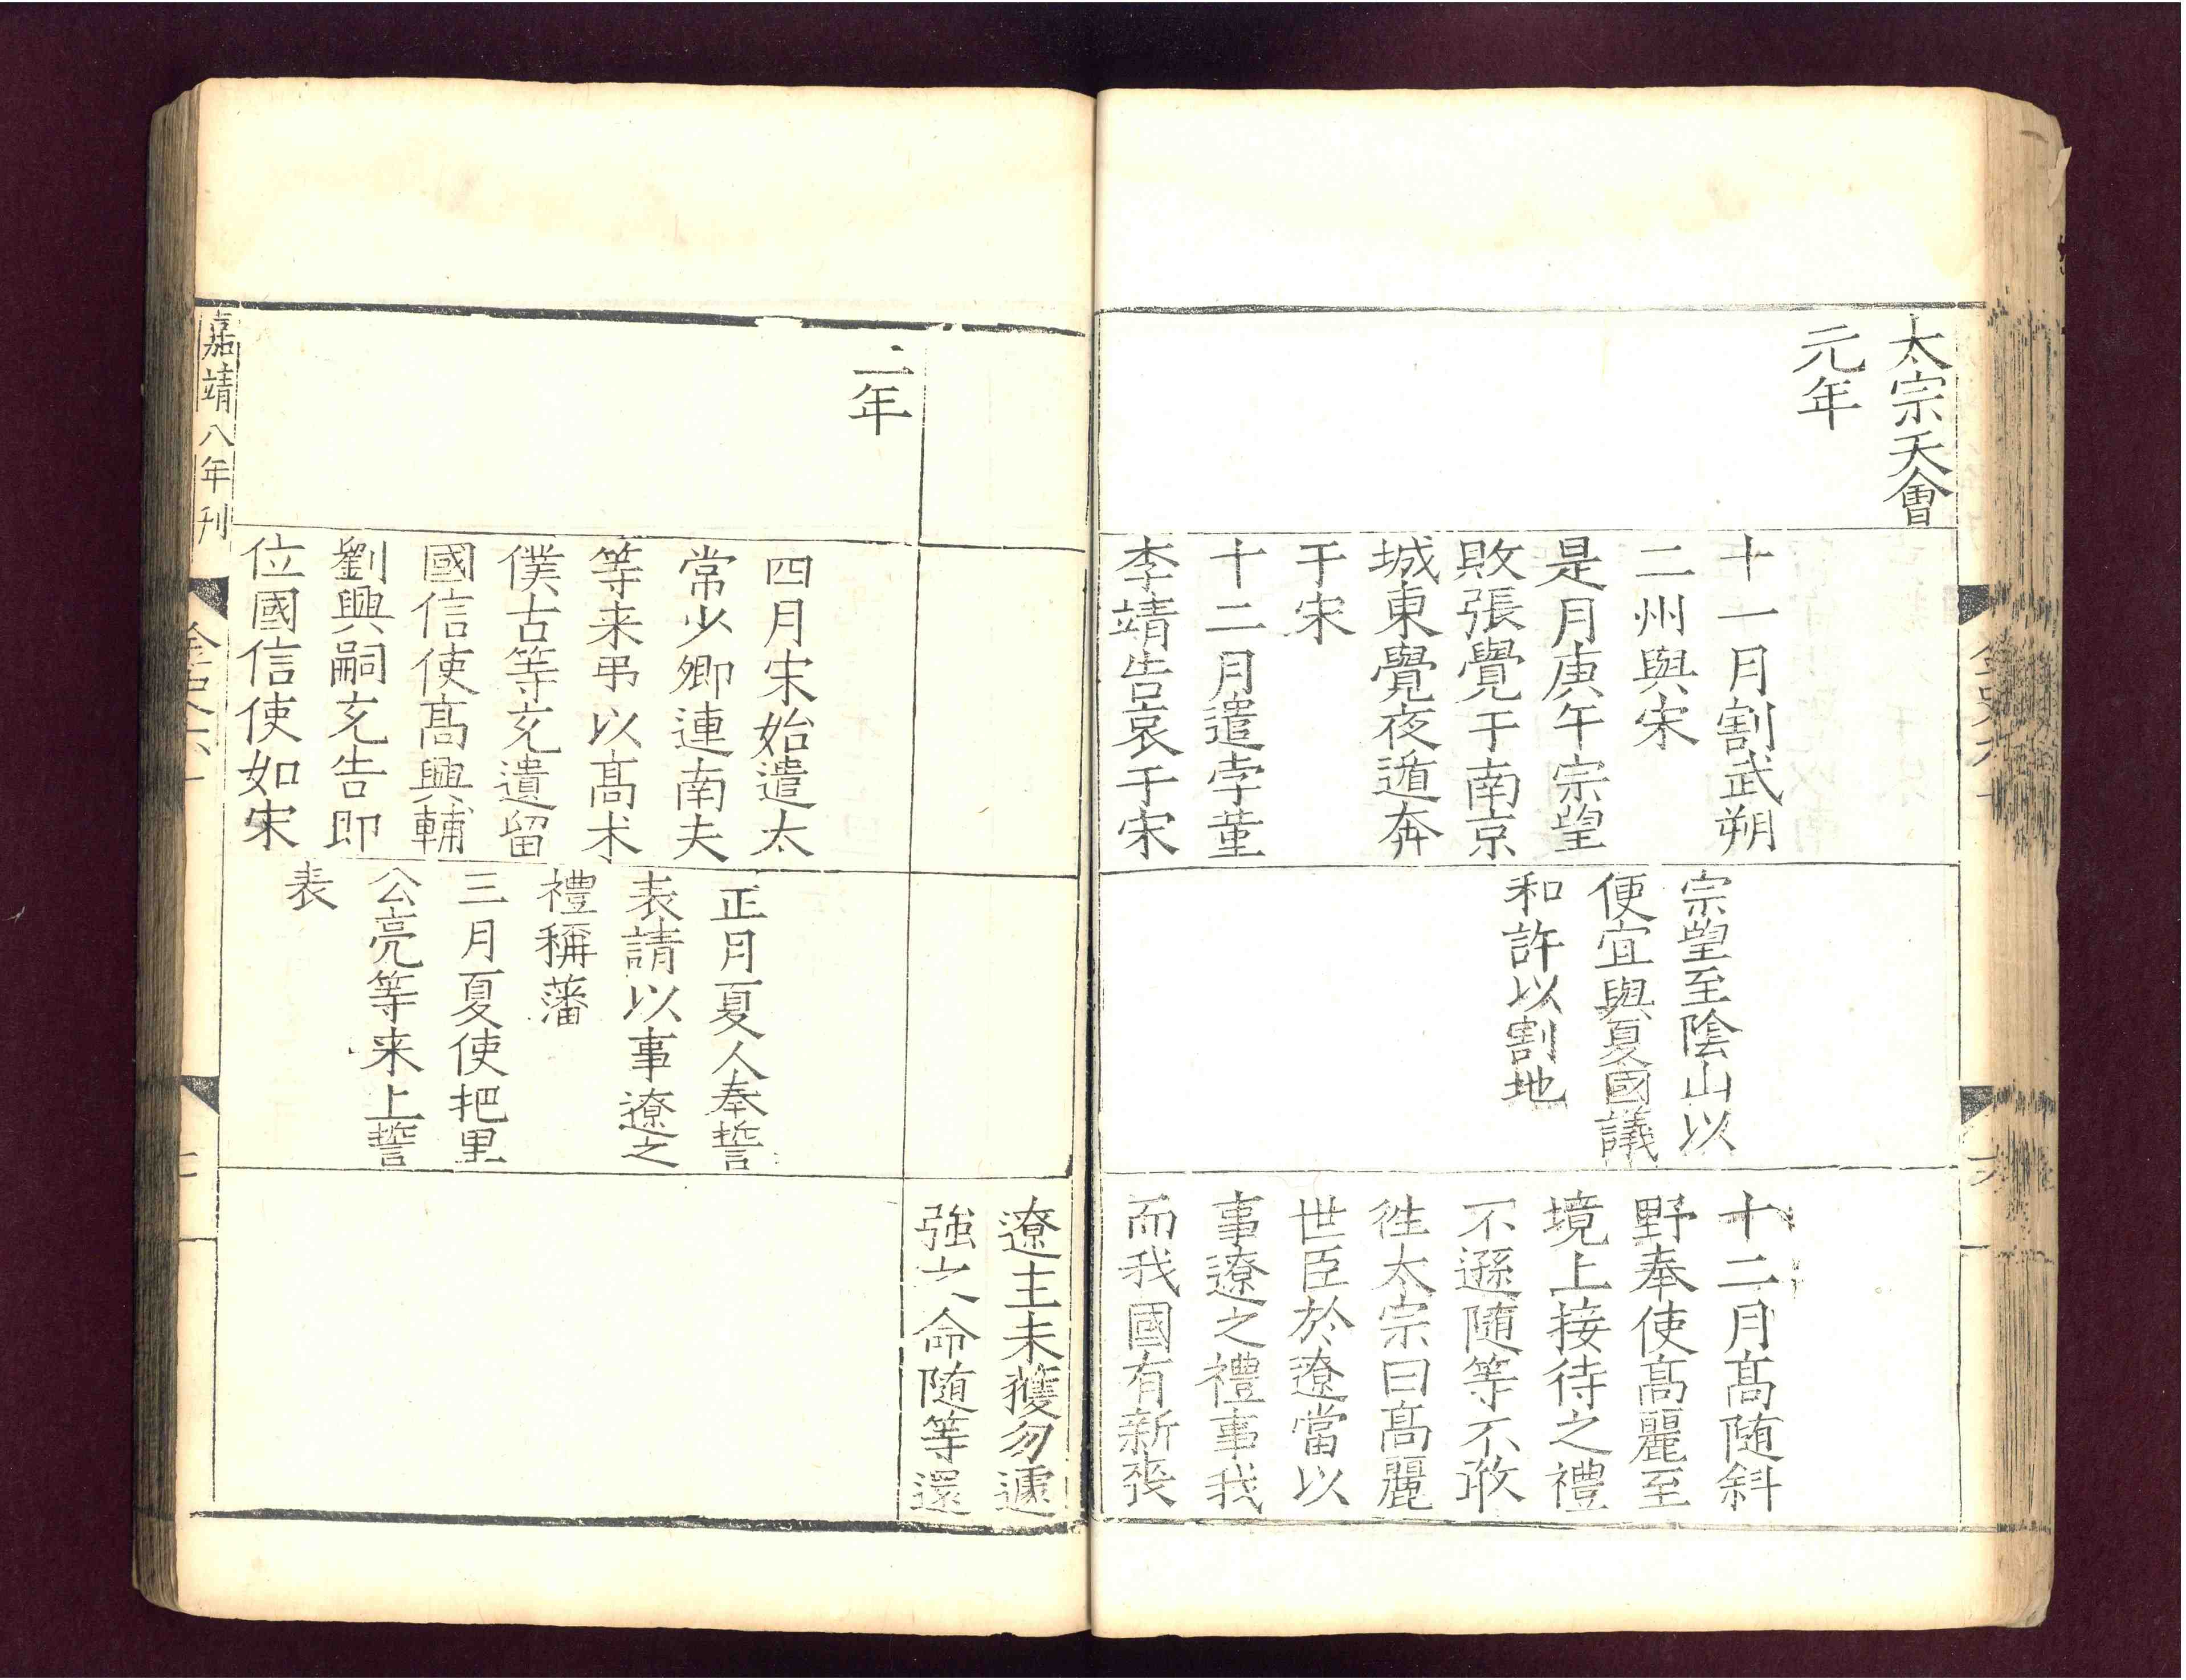 太宗天會
元年
十一月割武朔
二州與宋
是月庚午宗望
敗張覺于南京
城東覺夜遁奔
于宋
十二月遣孛菫
李靖告哀于宋
宗望至陰山以
便宜與夏國議
和許以割地
十二月高随斜
野奉使高麗至
境上接待之禮
不遜随等不敢
徃太宗曰高麗
世臣於遼當以
事遼之禮事我
而我國有新喪
遼主未獲勿遽
強之命随等還
二年
四月宋始遣太
常少卿連南夫
等来弔以高术
僕古等充遺留
國信使高興輔
劉興嗣充告即
位國信使如宋
正月夏人奉誓
表請以事遼之
禮稱藩
三月夏使把里
公亮等来上誓
表
嘉靖八年刊